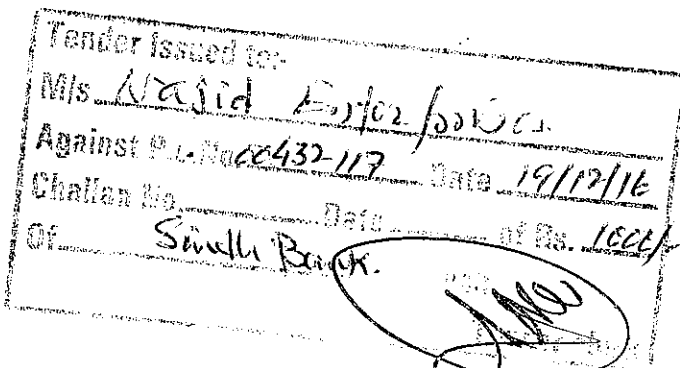 Tender Issued to:-
M/s. Wajid Enterprises.
Against P.O. No. 00432-117 Date 19/12/16
Challan No. Date of Rs. 1000/-
Of Sindh Bank.